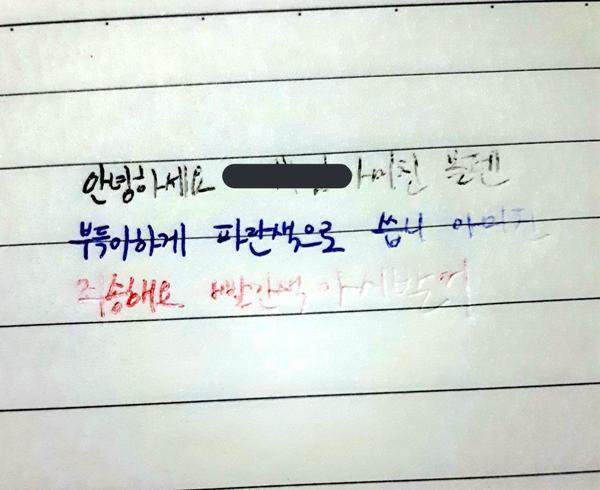 안녕하세요 아미친 볼펜
부득이하게 파란색으로 씁니 아미친
죄송해요 빨간색